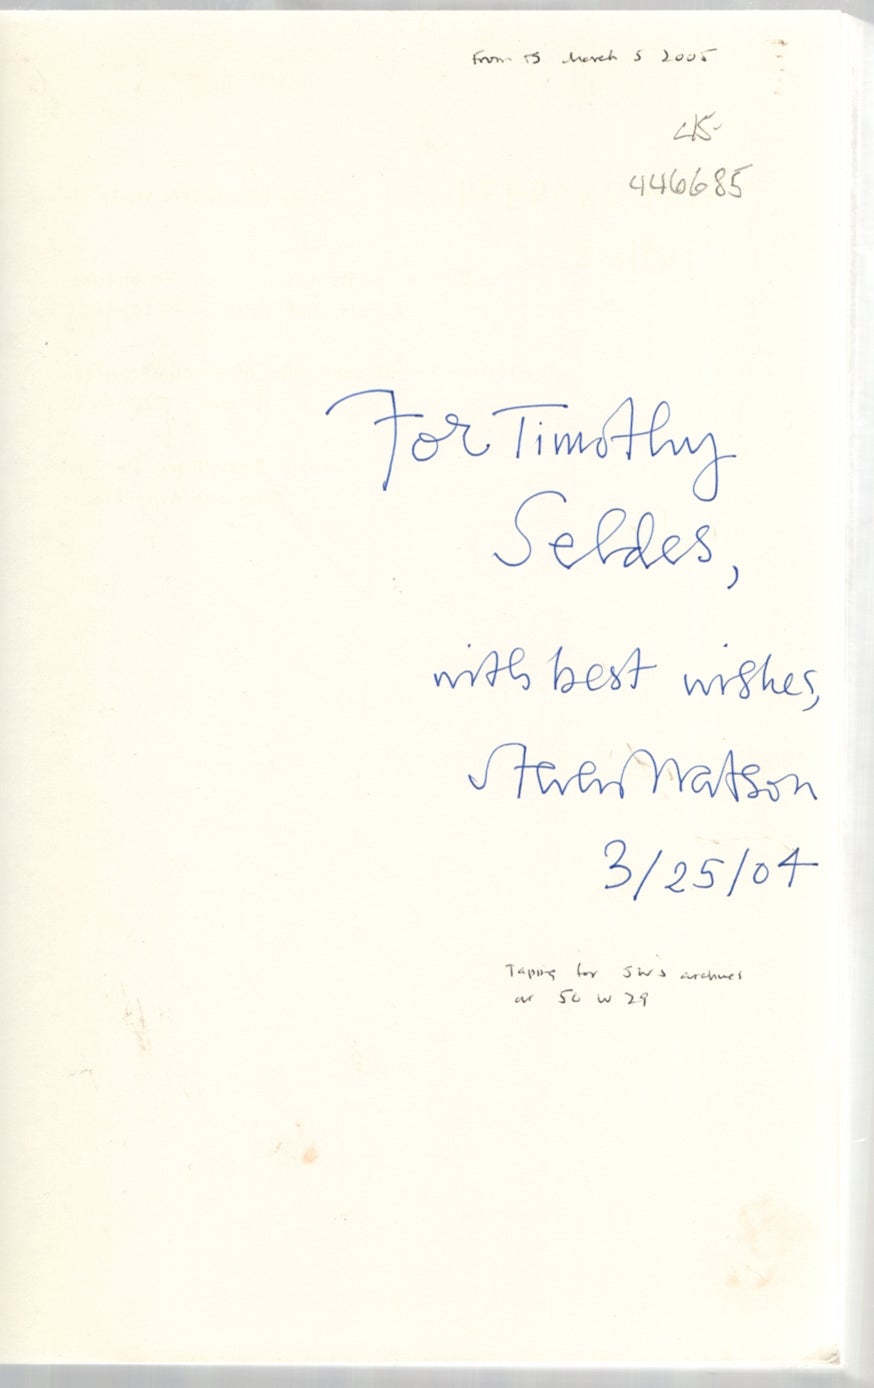 From TS March 5 2005
446685
For Timothy
Seldes,
with best wishes,
Steven Watson
3/25/04
Taping for SW's archives
at 50 W 29